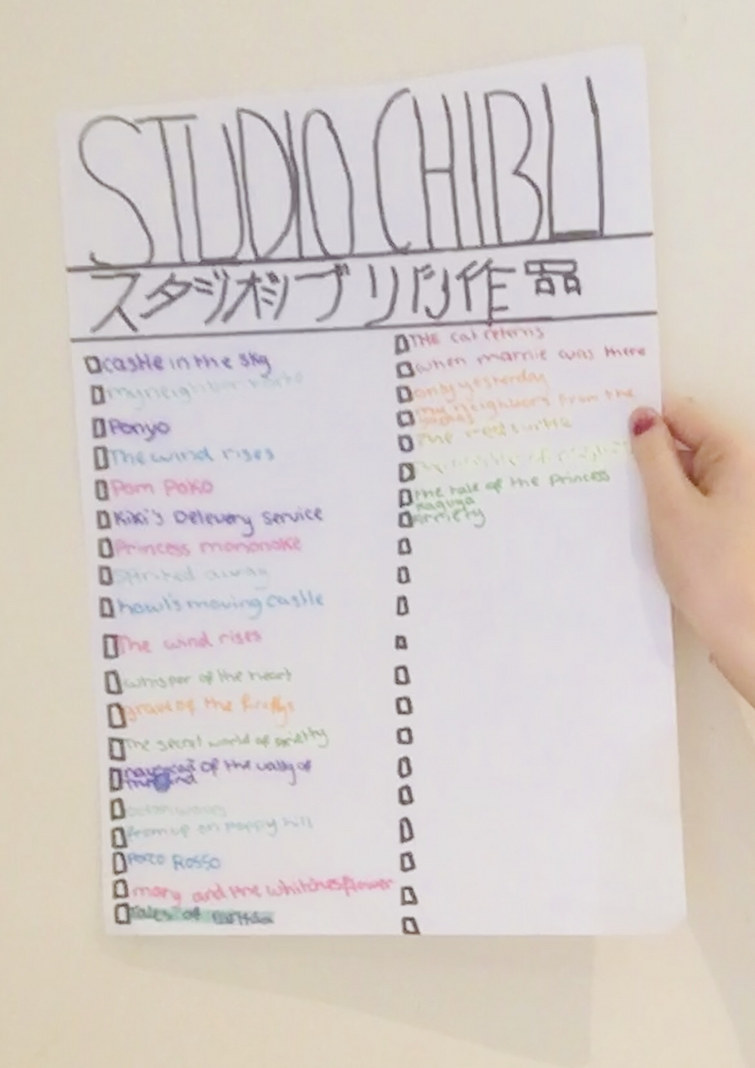 STUDIO CHIBLI
スタジオジブリ作品
castle in the sky
my neighbor
Ponyo
The wind rises
Pom Poko
Kiki's Delevery Service
Princess mononoke
Spirited away
howl's moving castle
The wind rises
whisper of the heart
grave of the
The secret world of arrietty
of the vally of
from up on poppy hill
Porco Rosso
mary and the whitches flower
Tales of
THE cat returns
when marnie was there
only yesterday
my neighbors from the
The red turtle
the tale of the Princess
kaguya
arriety